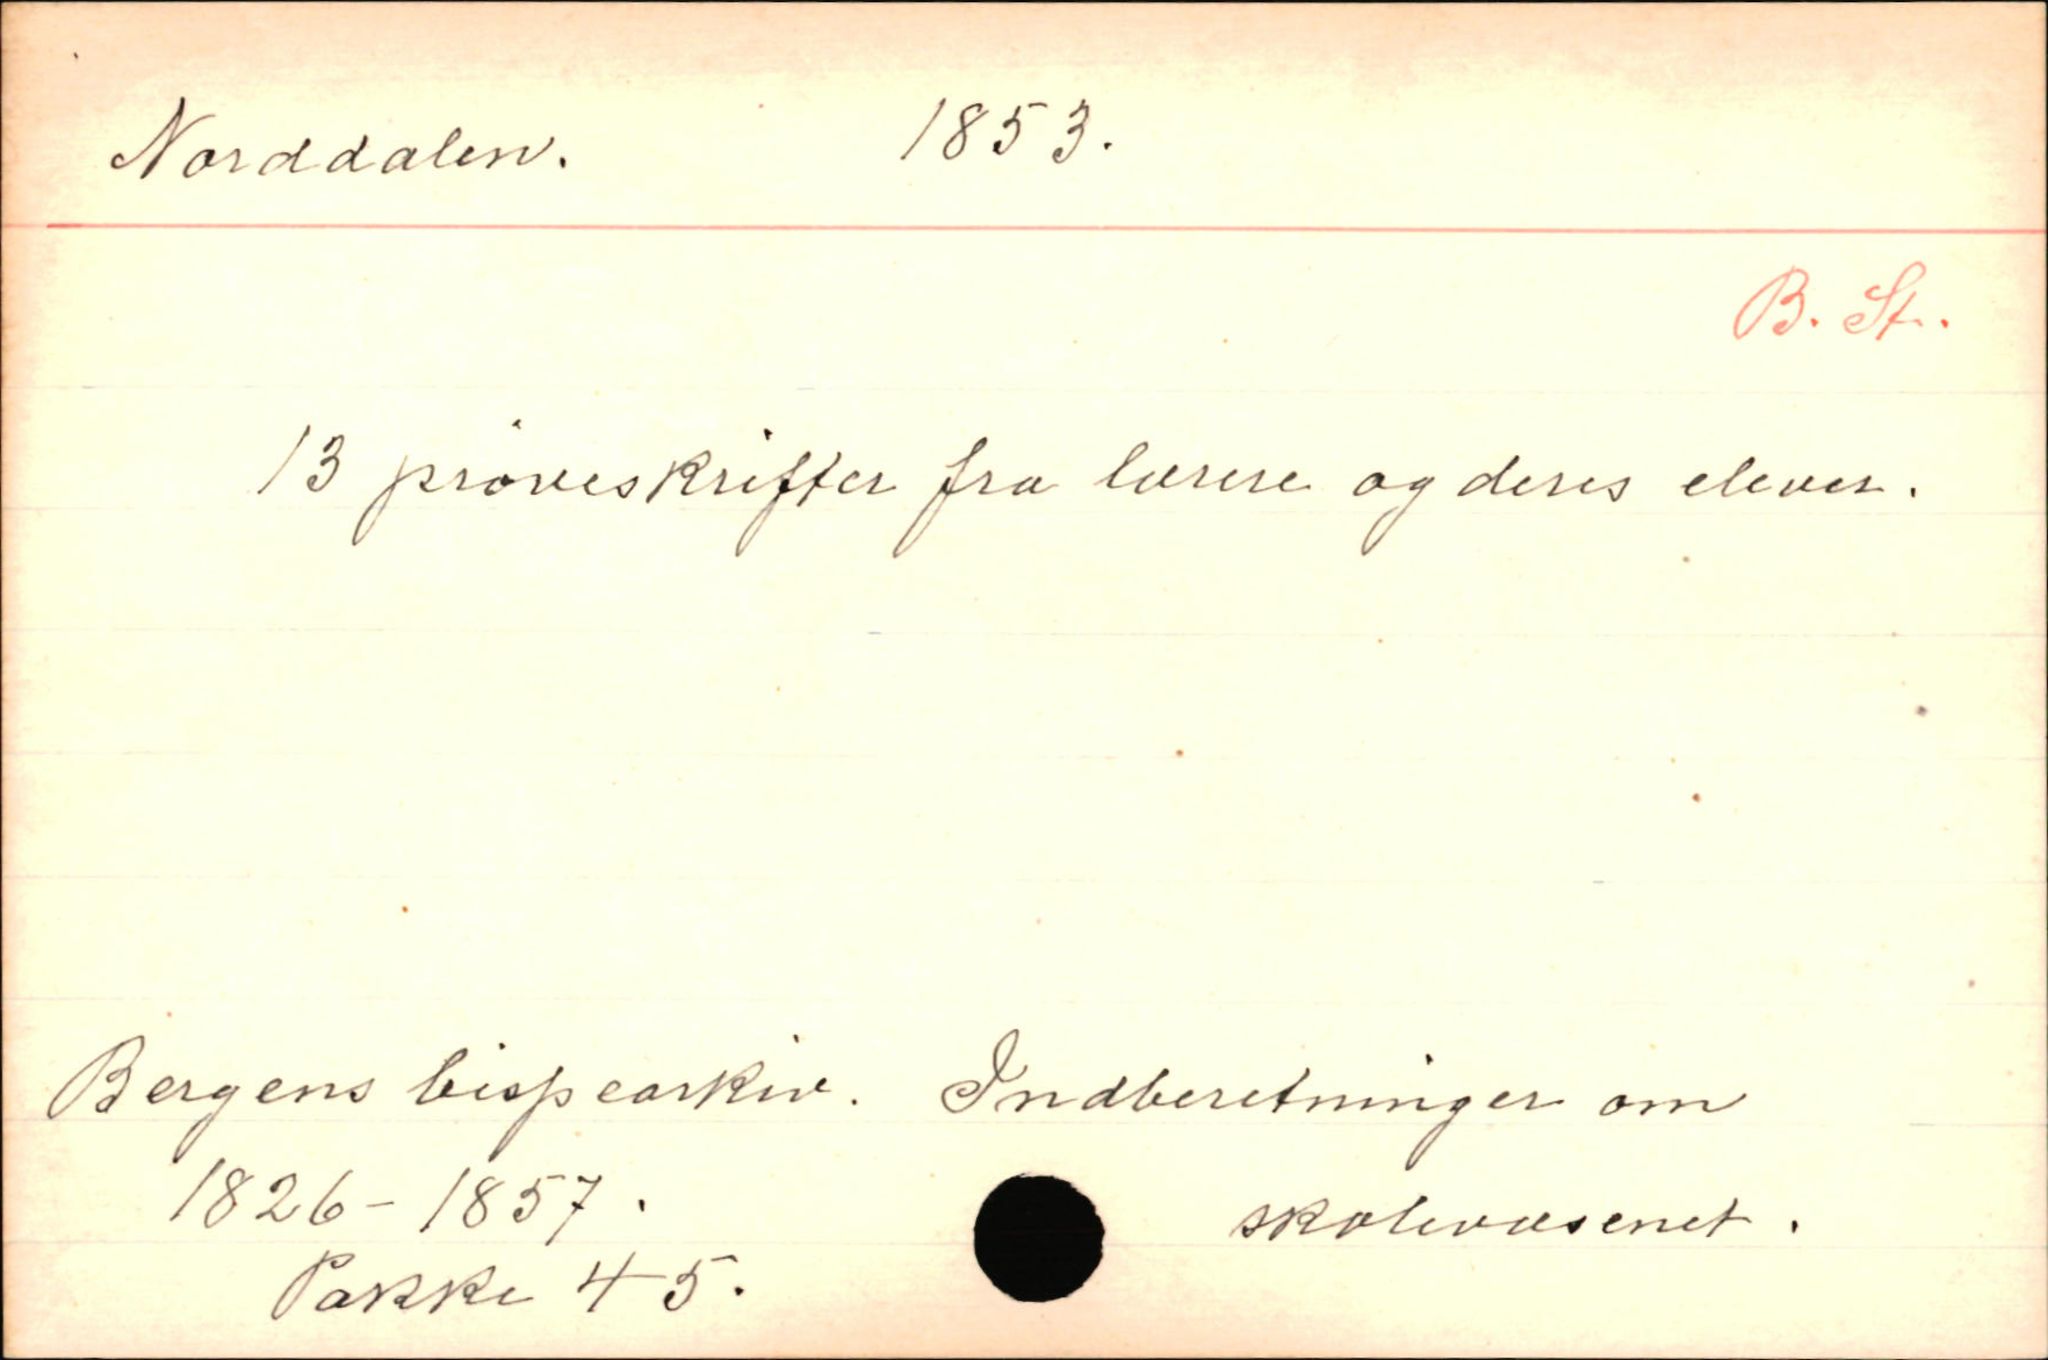 Norddalen. 1853.
B. St.
13 prøveskrifter fra lærere og deres elever.
Bergens bispearkiv. Indberetninger om
1826-1857. skolevæsenet.
Pakke 45.